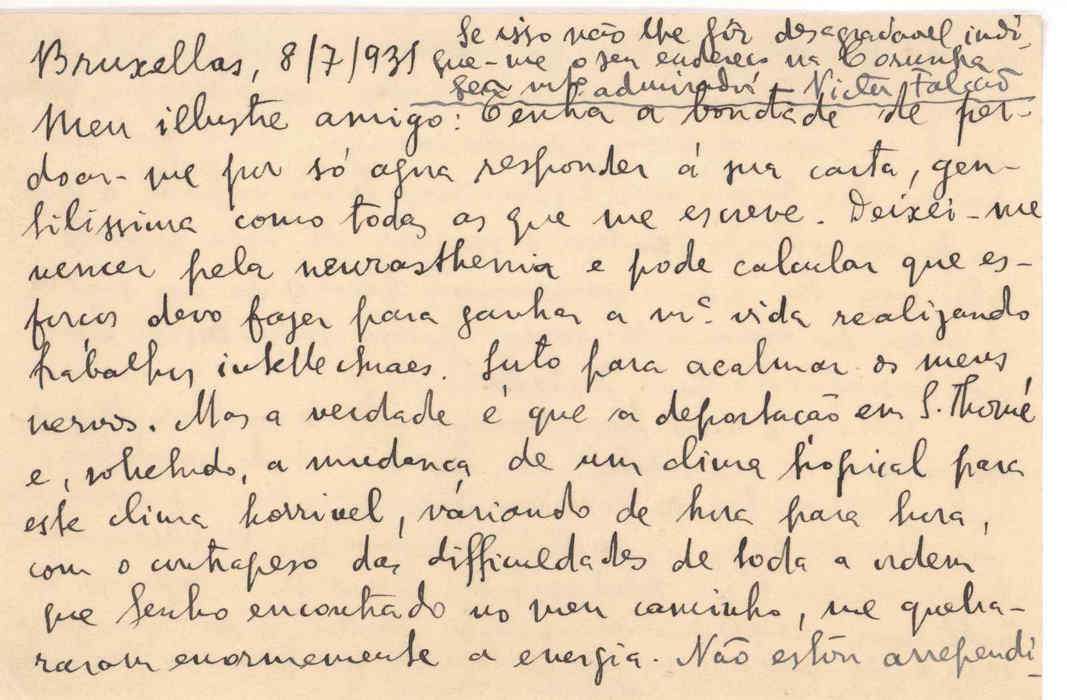 Se isso não lhe fôr desagradavel indi-
que-me o seu endereço na Corunha
Seu mto. admirador Victor Falcão
Bruxellas, 8/7/931
Meu illustre amigo: Tenha a bondade de per-
doar-me por só agora responder á sua carta, gen-
tilissima como todas as que me escreve. Deixei-me
vencer pela neurasthenia e pode calcular que es-
forços devo fazer para ganhar a mª. vida realizando
trabalhos intellectuaes. Luto para acalmar os meus
nervos. Mas a verdade é que a deportação em S. Thomé
e, sobretudo, a mudança de um clima tropical para
este clima horrivel, variando de hora para hora,
com o contrapeso das difficuldades de toda a ordem
que tenho encontrado no meu caminho, me quebra-
raram enormemente a energia. Não estou arrependi-